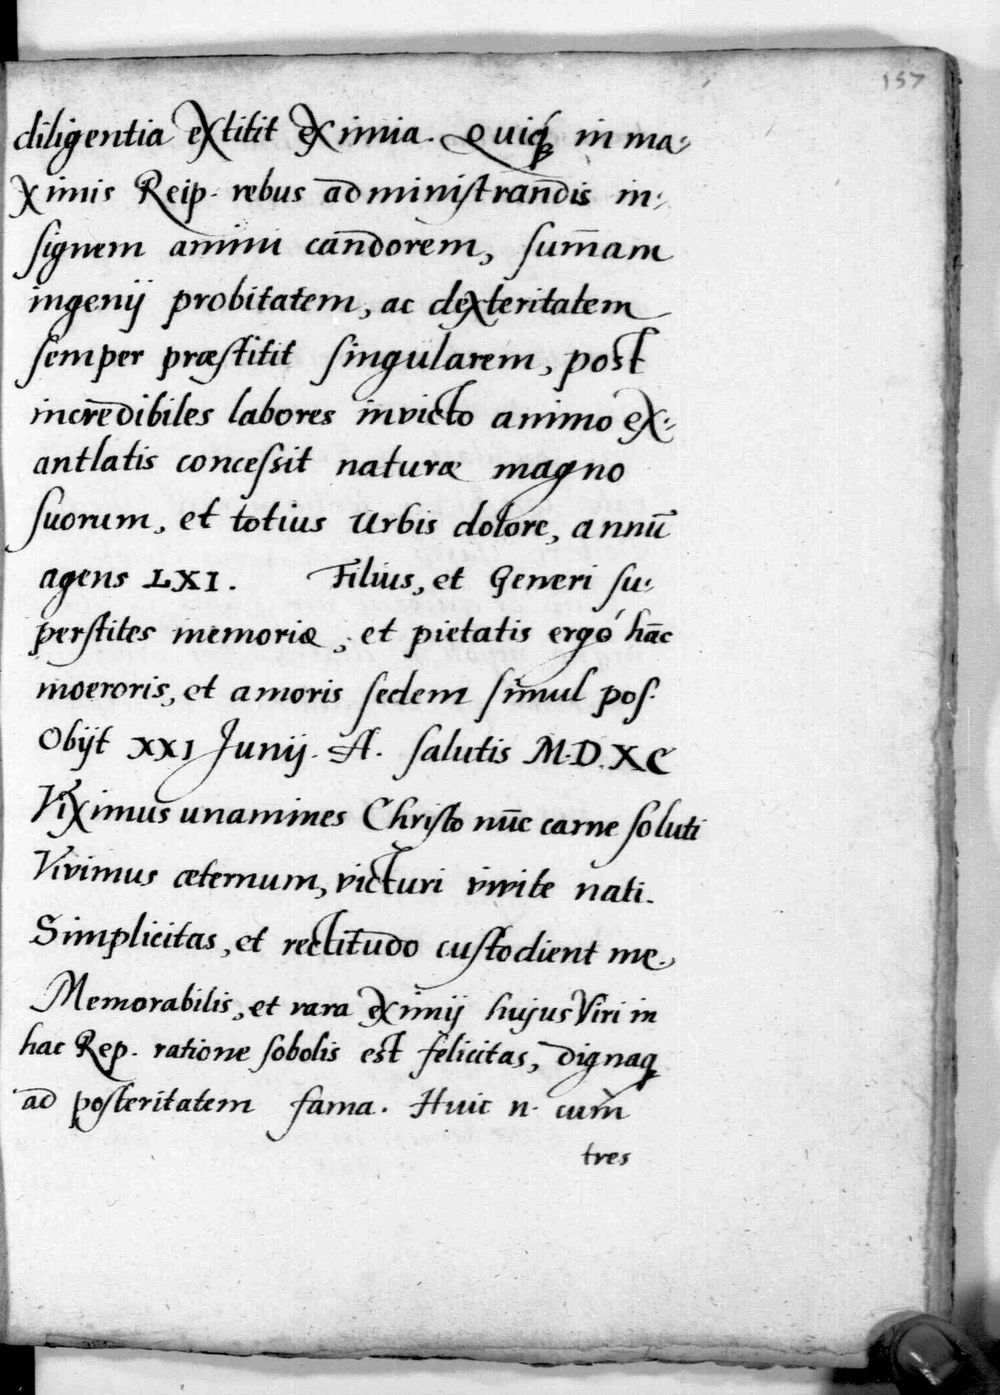 157
diligentia extitit eximia. Quiq́ꝫ in ma-
ximis Reip. rebus administrandis in-
signem animi candorem, sum̄am
ingenij probitatem, ac dexteritatem
semper præstitit singularem, post
incredibiles labores invicto animo ex-
antlatis concessit naturæ magno
suorum, et totius Urbis dolore, annū
agens LXI. Filius, et Generi su-
perstites memoriæ, et pietatis ergó hāc
moeroris, et amoris sedem simul pos.
Obijt XXI Junij. A. salutis M.D.XC
Viximus unamines Christo nūc carne soluti
Vivimus æternum, victuri vivite nati.
Simplicitas, et rectitudo custodient me.
Memorabilis, et rara eximij hujus Viri in
hac Rep. ratione sobolis est felicitas, dignaqꝫ
ad posteritatem fama. Huic n. cum
tres